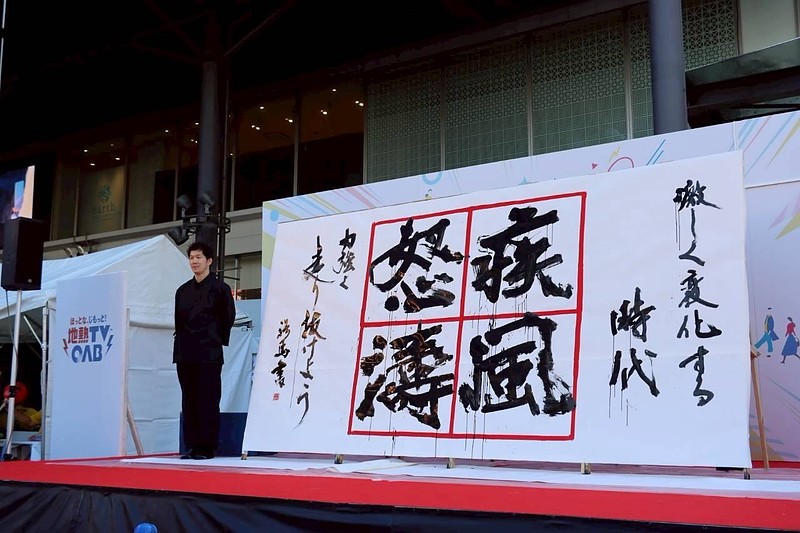 激しく変化する
時代
疾風
怒濤
力強く
走り抜けよう
書
ほっとな、じもっと!
地熱TV
OAB
earth